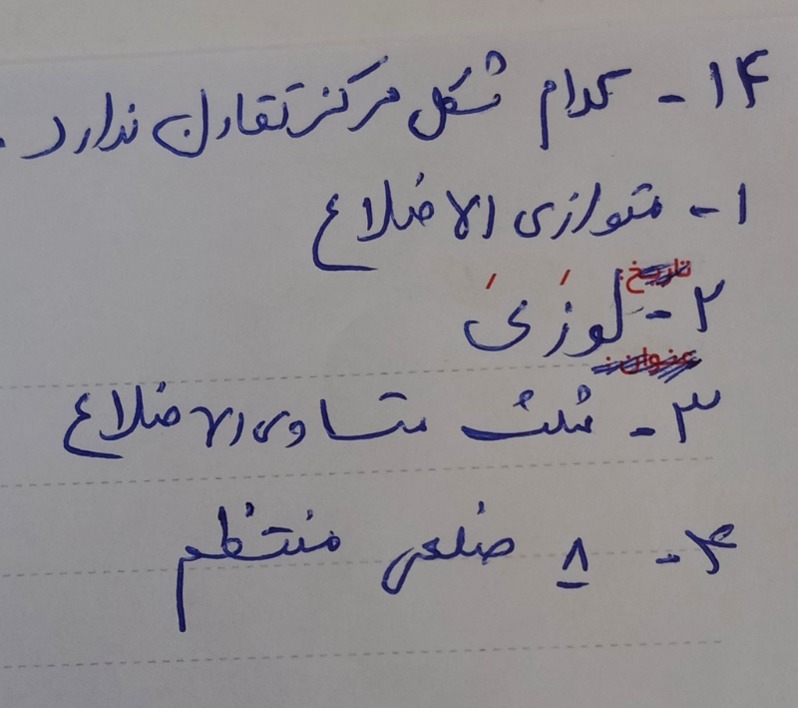 ۱۴- کدام شکل مرکز تقارن ندارد.
۱- متوازی الاضلاع
تاریخ:
۲- لوزَیَ
عنوان:
۳- مثلث متساوی الاضلاع
۴- ۸ ضلعی منتظم